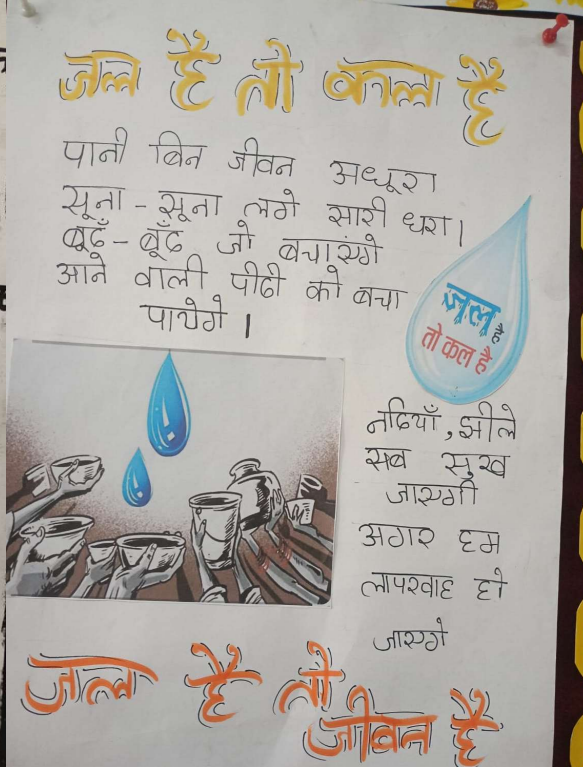 जल है तो कल है
पानी बिन जीवन अधूरा
सूना - सूना लगे सारी धरा।
बूँद - बूँद जो बचाएंगे
आने वाली पीढी को बचा
पायेगे ।
जल है
तो कल है
नदियाँ, झीले
सब सुख
जाएगी
अगर हम
लापरवाह हो
जाएगे
जल है तो
जीवन है